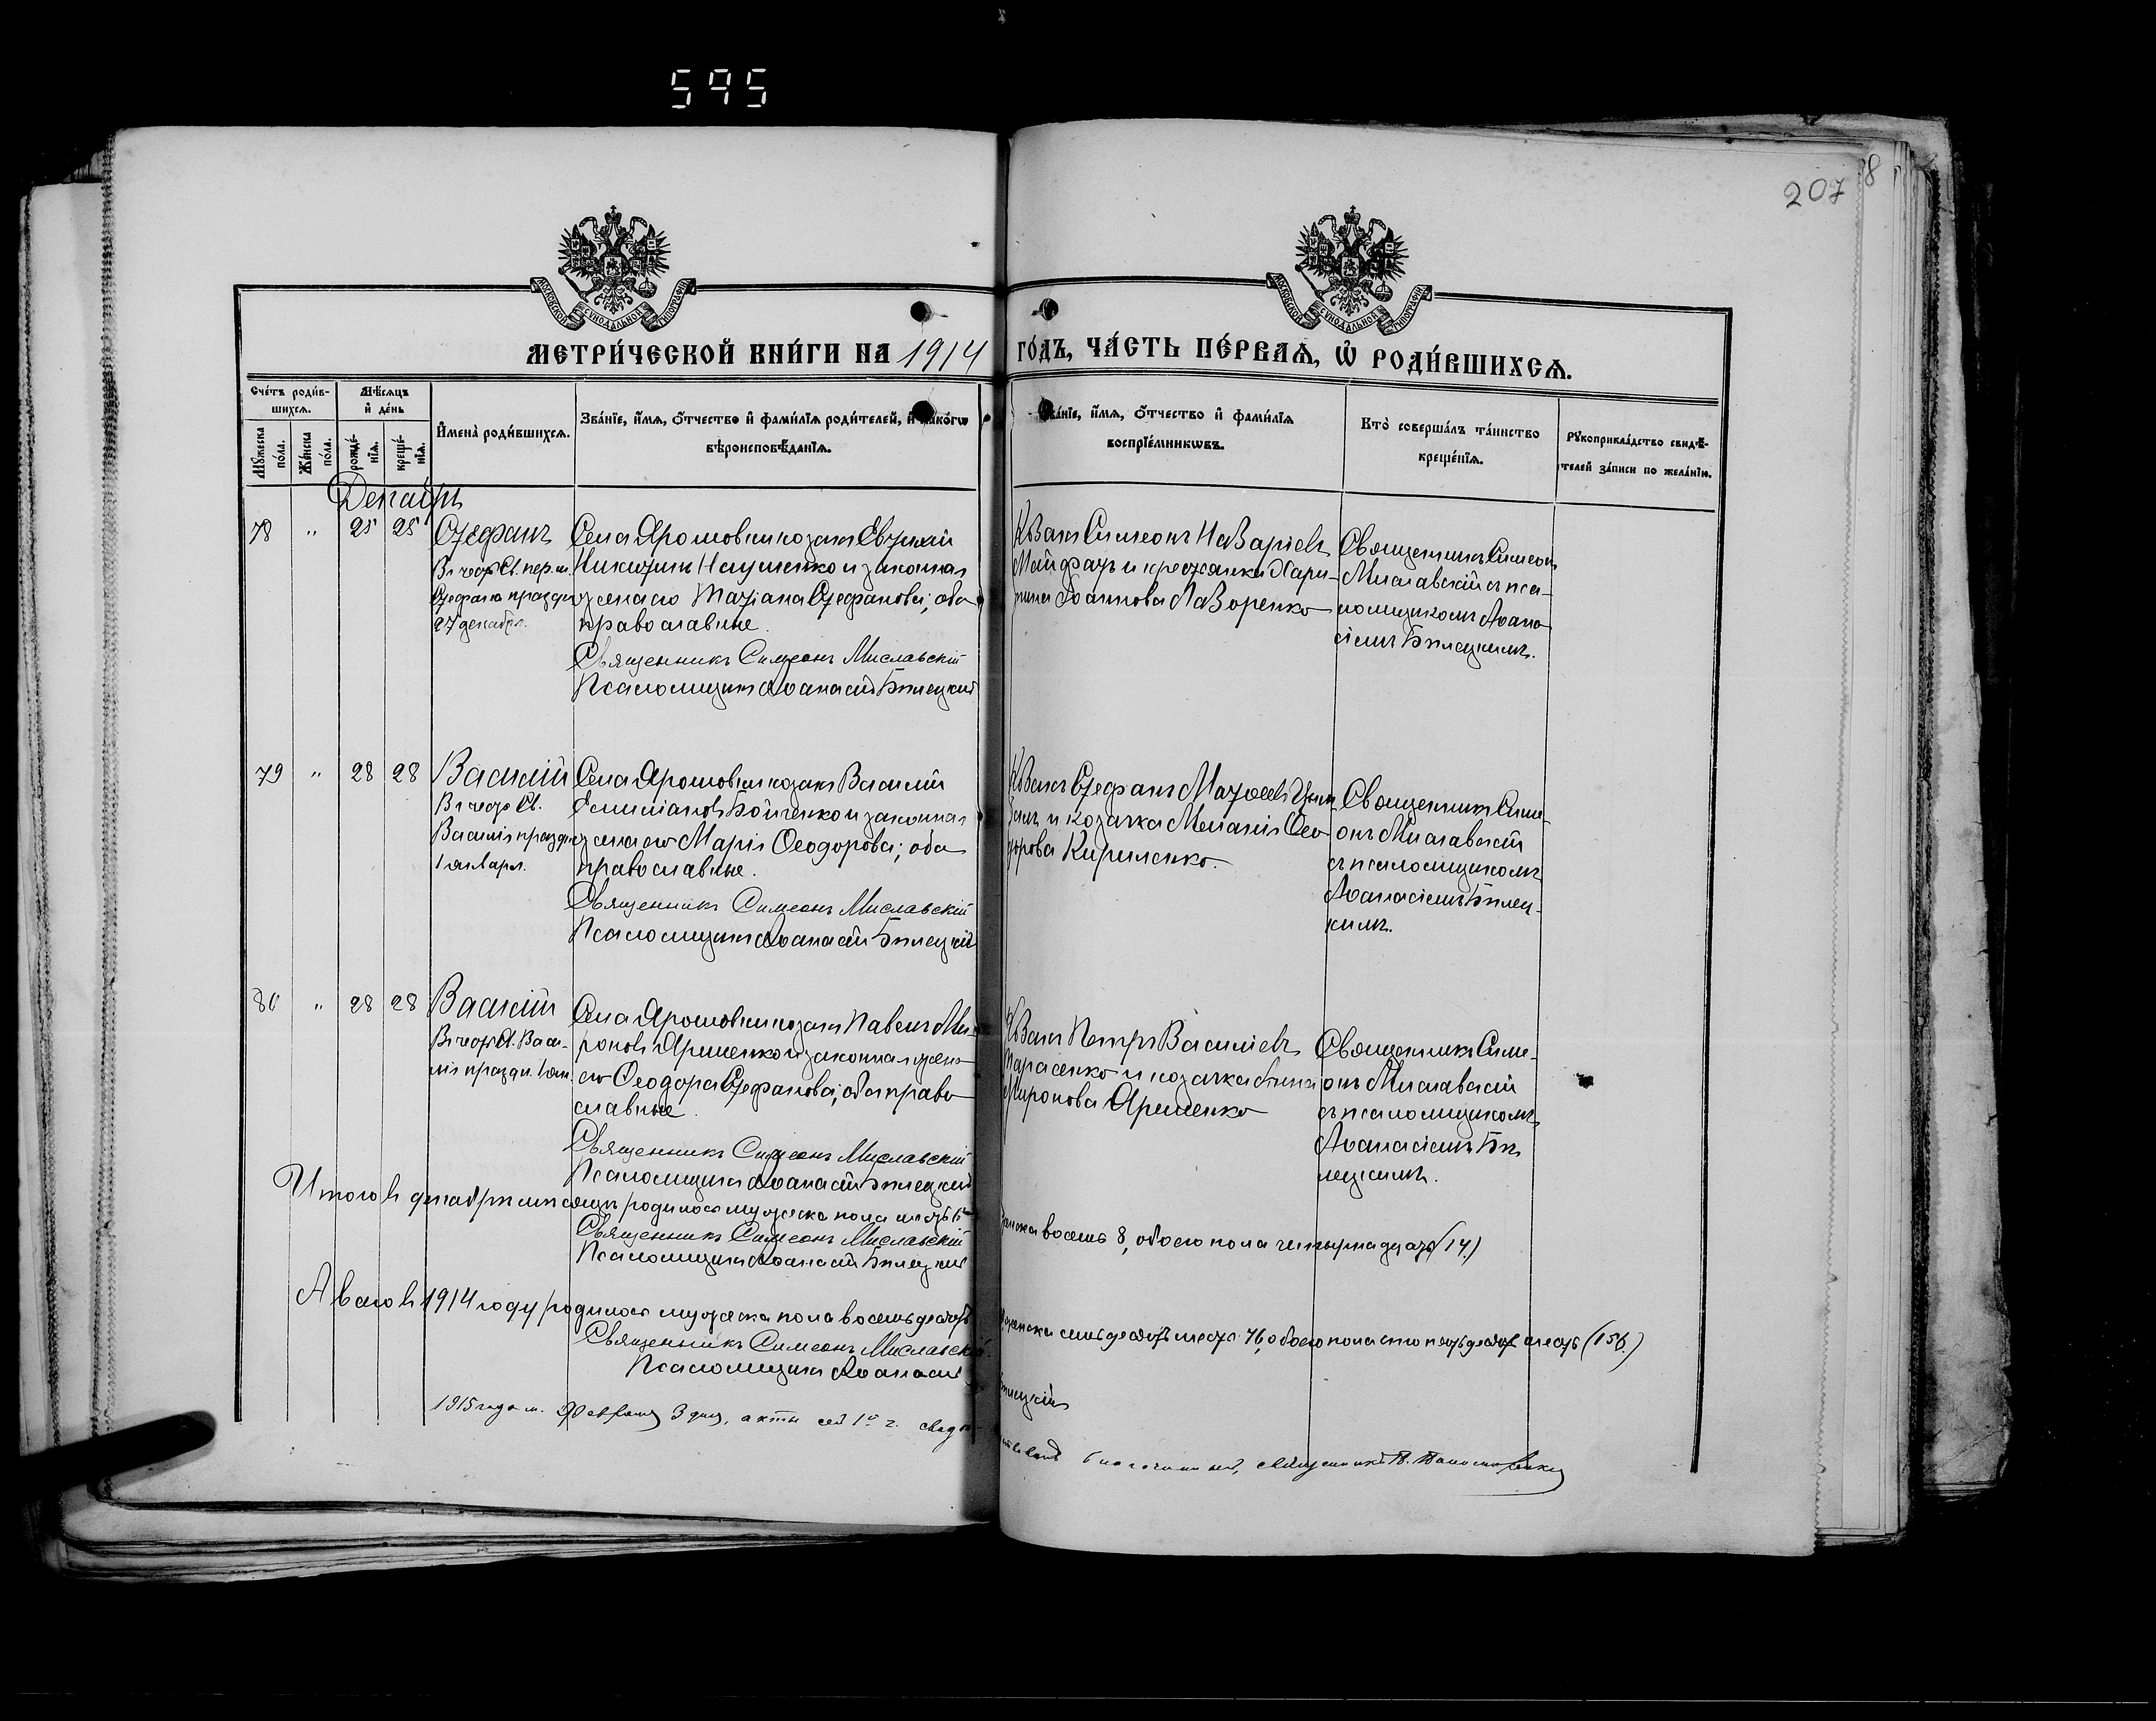 595
207
8
МОСКОВСКОЙ СѴНОДАЛЬНОЙ ТИПОГРАФІИ
МОСКОВСКОЙ СѴНОДАЛЬНОЙ ТИПОГРАФІИ
МЕТРИ́ЧЕСКОЙ КНИ́ГИ НА 1914 ГО́ДЪ, ЧА́СТЬ ПЕ́РВАЯ, Ѡ҆ РОДИ́ВШИХСЯ.
Сче́тъ роди́в-
шихся.
Мꙋ́жеска по́ла.
Же́нска по́ла.
Мѣ́сяцъ
и҆ де́нь
рожде́-
нїя.
креще́-
нїя.
И҆мена̀ роди́вшихся.
Зва́нїе, и҆́мя, ѻ҆́тчество и҆ фами́лїя роди́телей, и҆ како́гѡ
вѣроисповѣ́данїя.
Зва́нїе, и҆́мя, ѻ҆́тчество и҆ фами́лїя
воспрїе́мникѡвъ.
Кто̀ соверша́лъ та́инство
креще́нїя.
Рꙋкоприкла́дство свидѣ́-
телей за́писи по жела́нїю.
Декабрь
78 " 25 25
Стефанъ
Въ честь Св. пер. м.
Стефана праздн
27 декабр.
Села Ярошовки козакъ Евтихій
Никитинъ Науменко и законная
жена его Татіана Стефанова; оба
православные.
Священникъ Симеонъ Миславскій
Псаломщикъ Аѳанасій Билецкій
Козакъ Симеонъ Назаріевъ
и крестьянка Хари-
тина Іоаннова Лазоренко
Священникъ Симеонъ
Миславскій съ пса-
ломщикомъ Аѳана-
сіемъ Билецкимъ.
79 " 28 28
Василій
Въ честь Св.
Василія праздн
1 января.
Села Ярошовки козакъ Василій
Емиліановъ Бойченко и законная
жена его Марія Ѳеодорова; оба
православные.
Священникъ Симеонъ Миславскій
Псаломщикъ Аѳанасій Билецкій
Козакъ Стефанъ
и козачка Меланія Ѳео-
дорова Кириленко.
Священникъ Симе-
онъ Миславскій
съ псаломщикомъ
Аѳанасіемъ Билец-
кимъ.
80 " 28 28
Василій
Въ честь Св. Васи-
лія праздн. 1 ян.
Села Ярошовки козакъ Павелъ Ми-
роновъ Яременко и законная жена
его Ѳеодора Стефанова; оба право
славные.
Священникъ Симеонъ Миславскій
Псаломщикъ Аѳанасій Билецкій
Козакъ Петръ Василіевъ
Тарасенко и козачка Анна
Миронова Яременко
Священникъ Симе-
онъ Миславскій
съ псаломщикомъ
Аѳанасіемъ Би
лецкимъ.
Итого въ декабрѣ мѣсяцѣ родилось мужеска пола шесть 6 женска восемь 8, обоего пола четырнадцать (14)
Священникъ Симеонъ Миславскій
Псаломщикъ Аѳанасій Билецкій
А всего въ 1914 году родилось мужеска пола восемьдесятъ женска семьдесятъ шесть 76, обоего пола сто пятьдесятъ шесть (156.)
Священникъ Симеонъ Миславскій.
Псаломщикъ Аѳанасій Билецкій
1915 года м. Февраля 3 дня, акты сей 1й ч. свидѣ-
тельствовалъ благочинный, священникъ